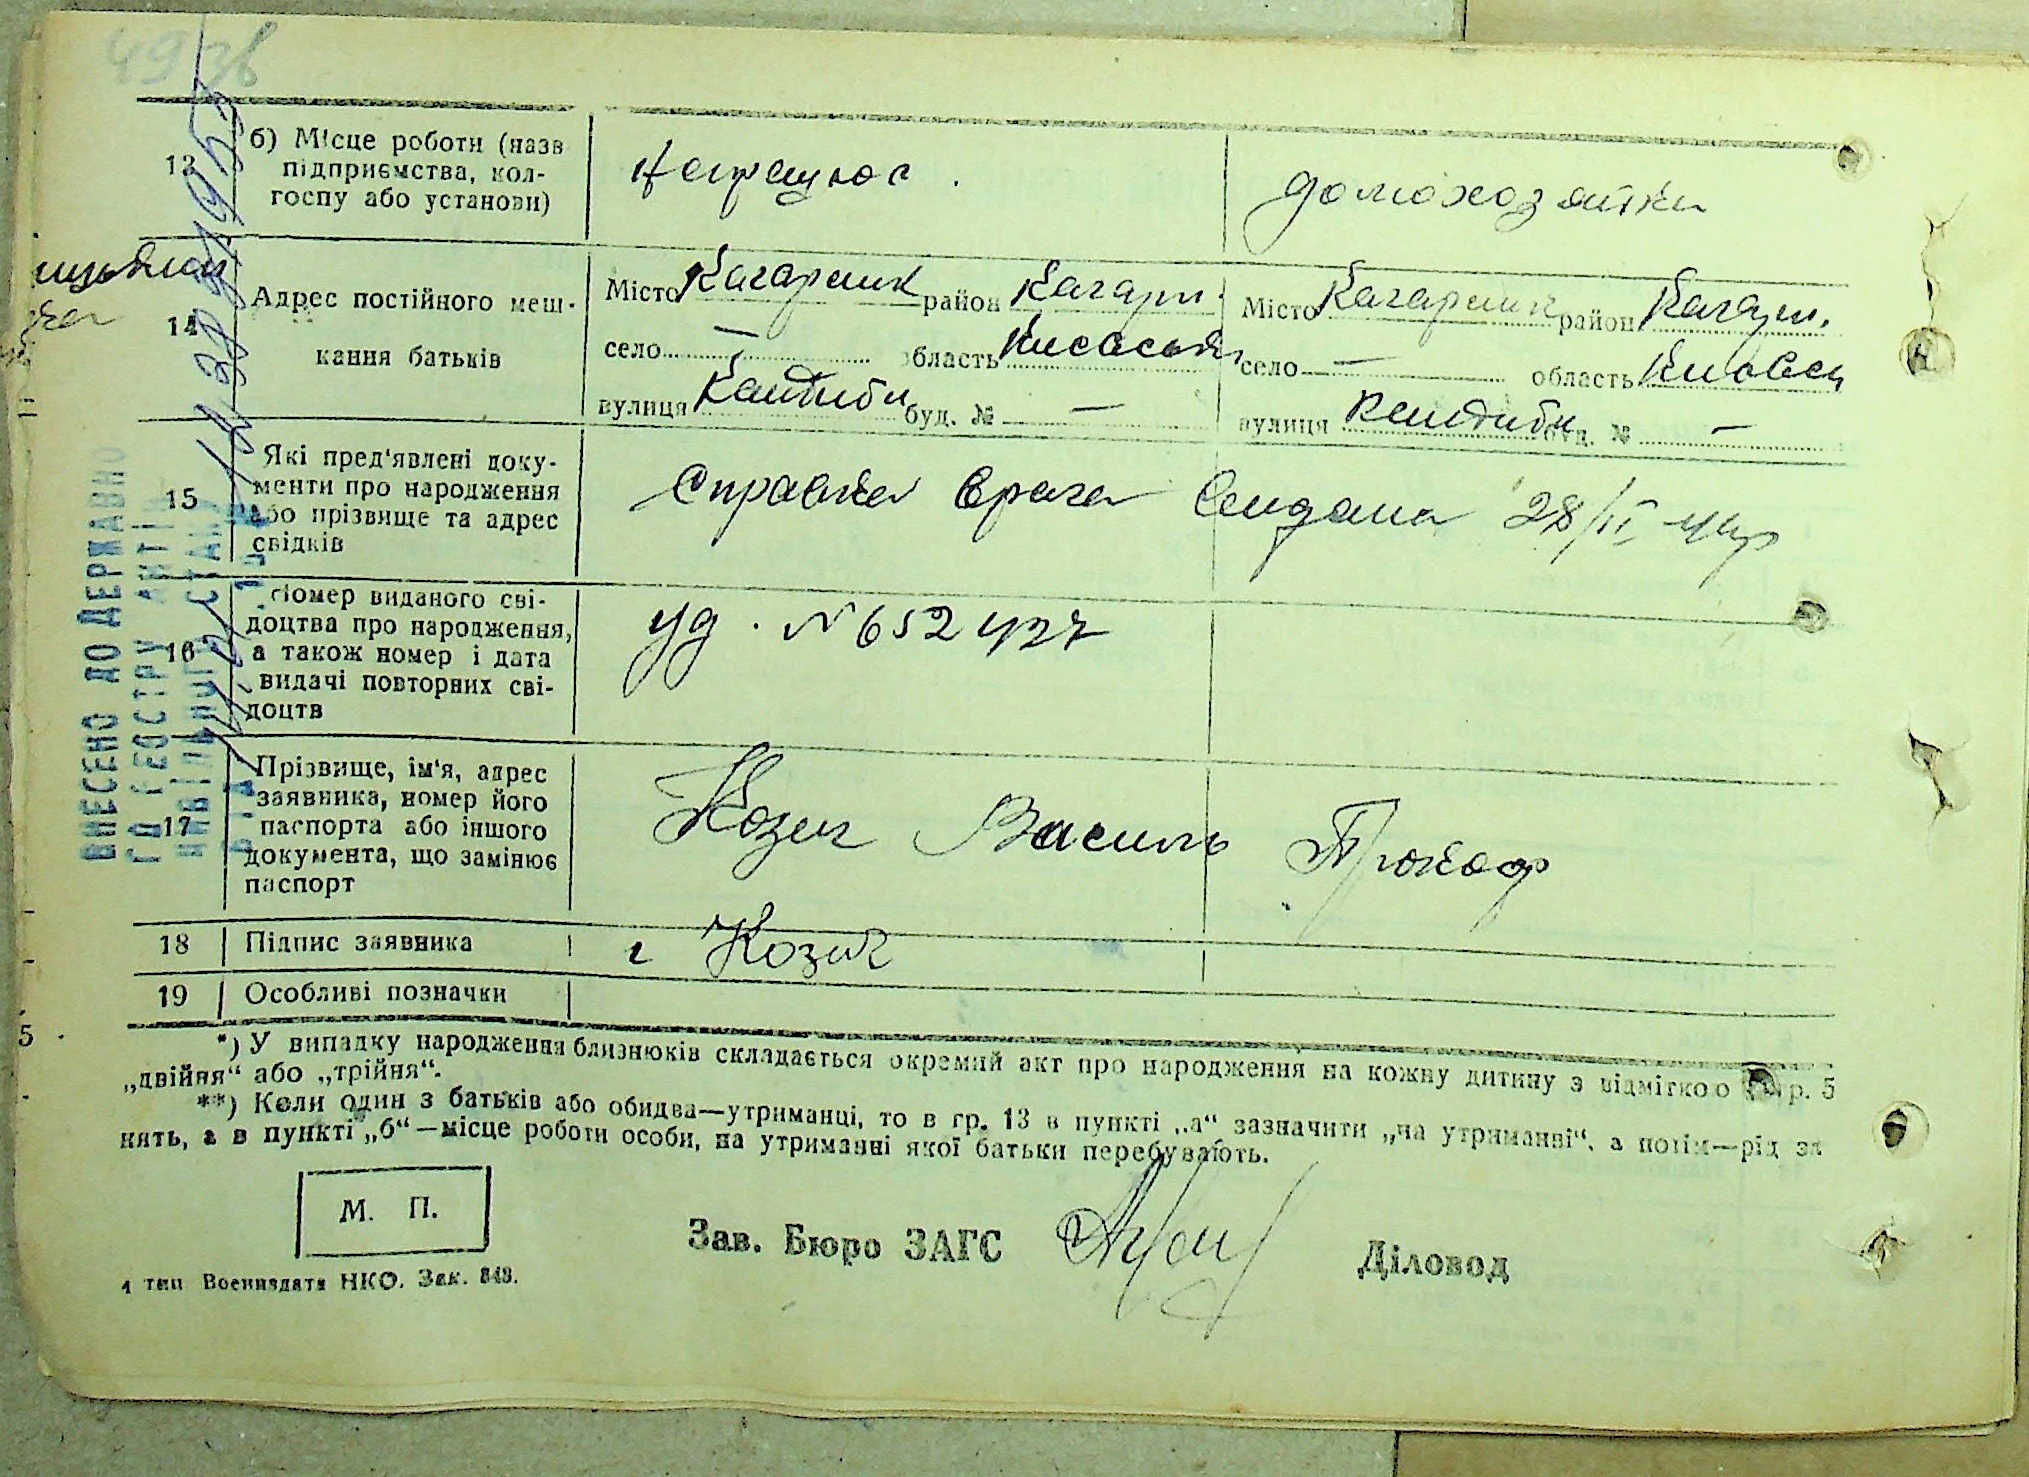 49 зв
13
б) Місце роботи (назв
підприємства, кол-
госпу або установи)
домохозяйки
14
Адрес постійного меш-
кання батьків
Місто Кагарлик район Кагарл.
село — область Київськ
вулиця Кандиби буд. № —
Місто Кагарлик район Кагарл.
село — область Києвск
вулиця Кандиби буд. № —
15
Які пред'явлені доку-
менти про народження
або прізвище та адрес
свідків
справка врача 28/II 44 р
16
Номер виданого сві-
доцтва про народження,
а також номер і дата
видачі повторних сві-
доцтв
уд. № 652427
17
Прізвище, ім'я, адрес
заявника, номер його
паспорта або іншого
документа, що замінює
паспорт
Козич Василь Прокоф
18
Підпис заявника
Козич
19
Особливі позначки
*) У випадку народження близнюків складається окремий акт про народження на кожну дитину з відміткою в гр. 5
„двійня“ або „трійня“.
**) Коли один з батьків або обидва—утриманці, то в гр. 13 в пункті „а“ зазначити „на утриманні“, а потім—рід за
нять, а в пункті „б“—місце роботи особи, на утриманні якої батьки перебувають.
М. П.
Зав. Бюро ЗАГС
Діловод
1 тип Воениздата НКО. Зак. 848.
ВНЕСЕНО ДО ДЕРЖАВНО
ГО РЕЄСТРУ АКТІВ
ЦИВІЛЬНОГО СТАНУ